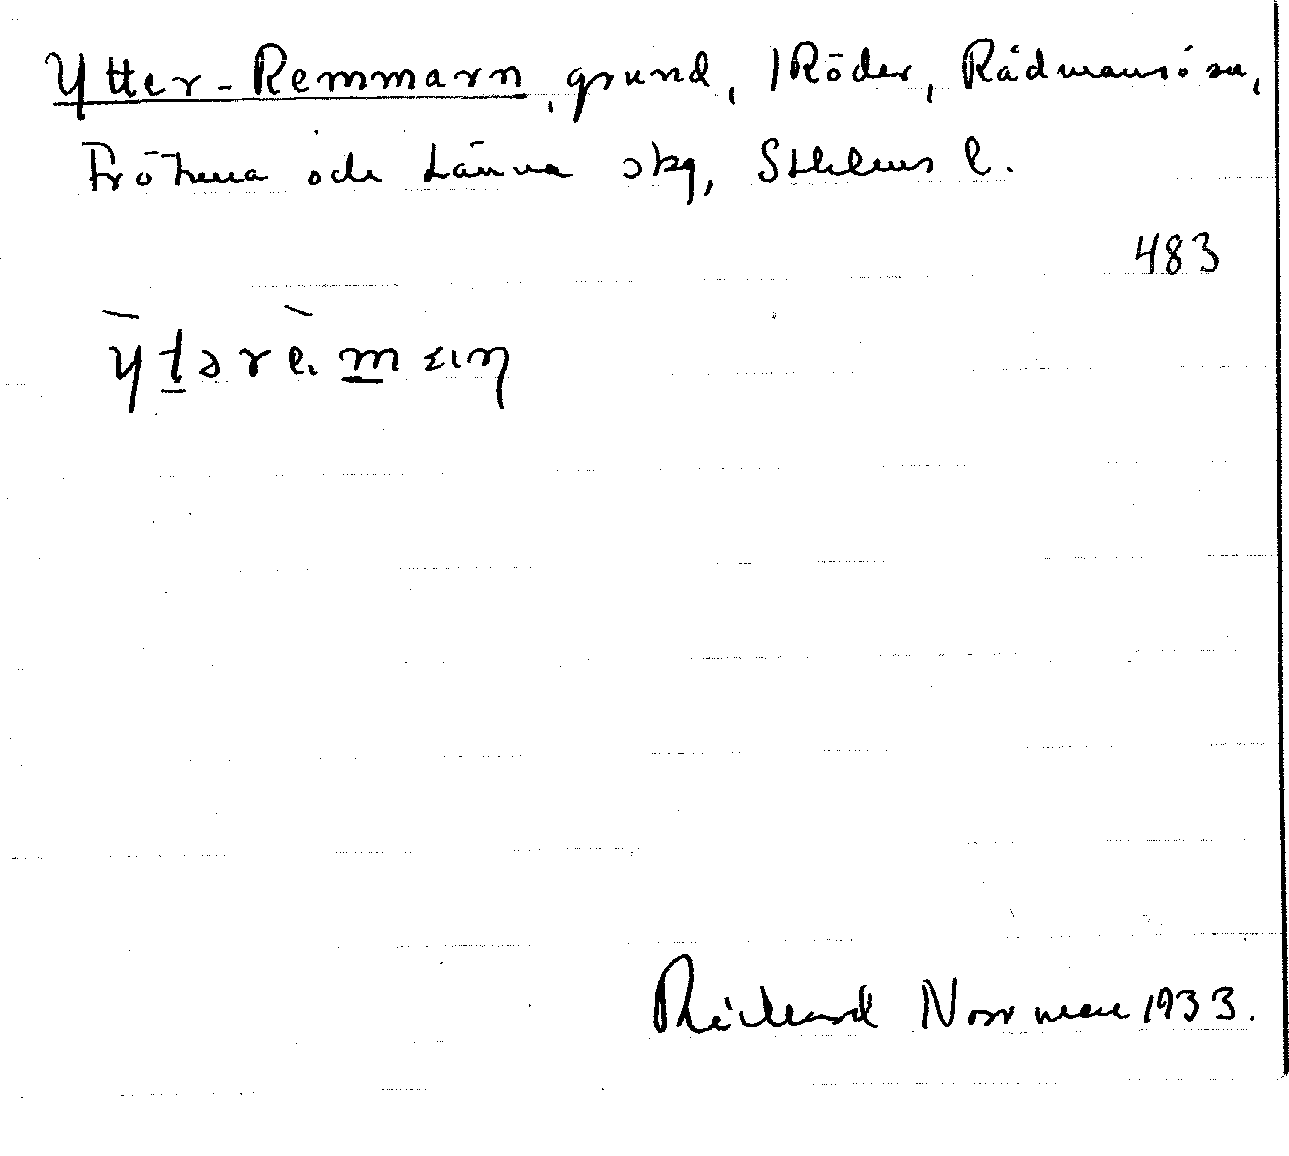 Ytter-Remmarn, grund, 1 Röder, Rådmansö sn,
Frötuna och Länna skg, Sthlms l.
483
Richard Norrman 1933.